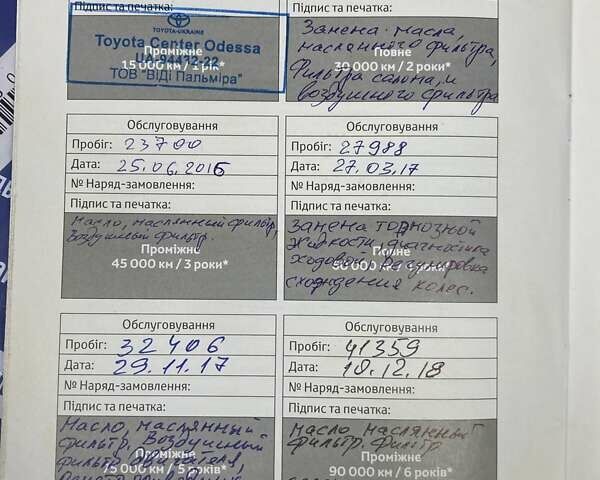 Підпис та печатка:
TOYOTA-UKRAINE
Toyota Center Odessa
Проміжне
UA-94432-22
15 000 км / 1 рік*
ТОВ "ВіДі Пальміра"
Підпис та печатка:
Замена масла,
маслянного фильтра,
Повне
Фильтра салона, и
30 000 км / 2 роки*
воздушного фильтра
Обслуговування
Пробіг: 23700
Дата: 25.06.2016
№ Наряд-замовлення:
Підпис та печатка:
Масло, маслянный фильтр,
Воздушный фильтр.
Проміжне
45 000 км / 3 роки*
Обслуговування
Пробіг: 27988
Дата: 27.03.17
№ Наряд-замовлення:
Підпис та печатка:
Замена тормозной
жидкости, диагностика
Повне
ходовой, Регулировка
схождения колес.
Обслуговування
Пробіг: 32406
Дата: 29.11.17
№ Наряд-замовлення:
Підпис та печатка:
Масло, маслянный
фильтр, Воздушный
Проміжне
фильтр двигателя,
75 000 км / 5 років*
Обслуговування
Пробіг: 41359
Дата: 10.12.18
№ Наряд-замовлення:
Підпис та печатка:
масло, маслянный
фильтр, фильтр
Повне
90 000 км / 6 років*